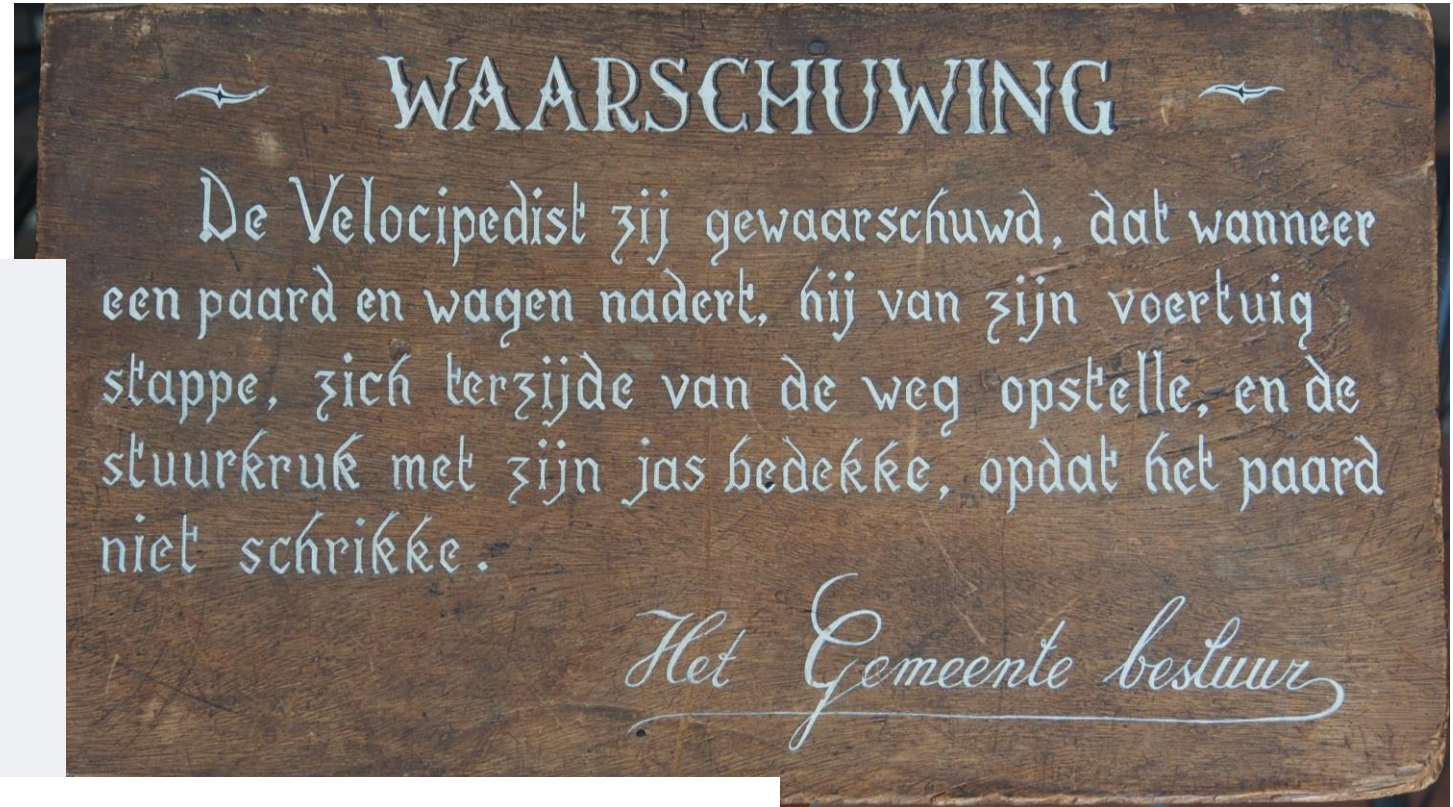 WAARSCHUWING
De Velocipedist zij gewaarschuwd, dat wanneer
een paard en wagen nadert, hij van zijn voertuig
stappe, zich terzijde van de weg opstelle, en de
stuurkruk met zijn jas bedekke, opdat het paard
niet schrikke.
Het Gemeente bestuur